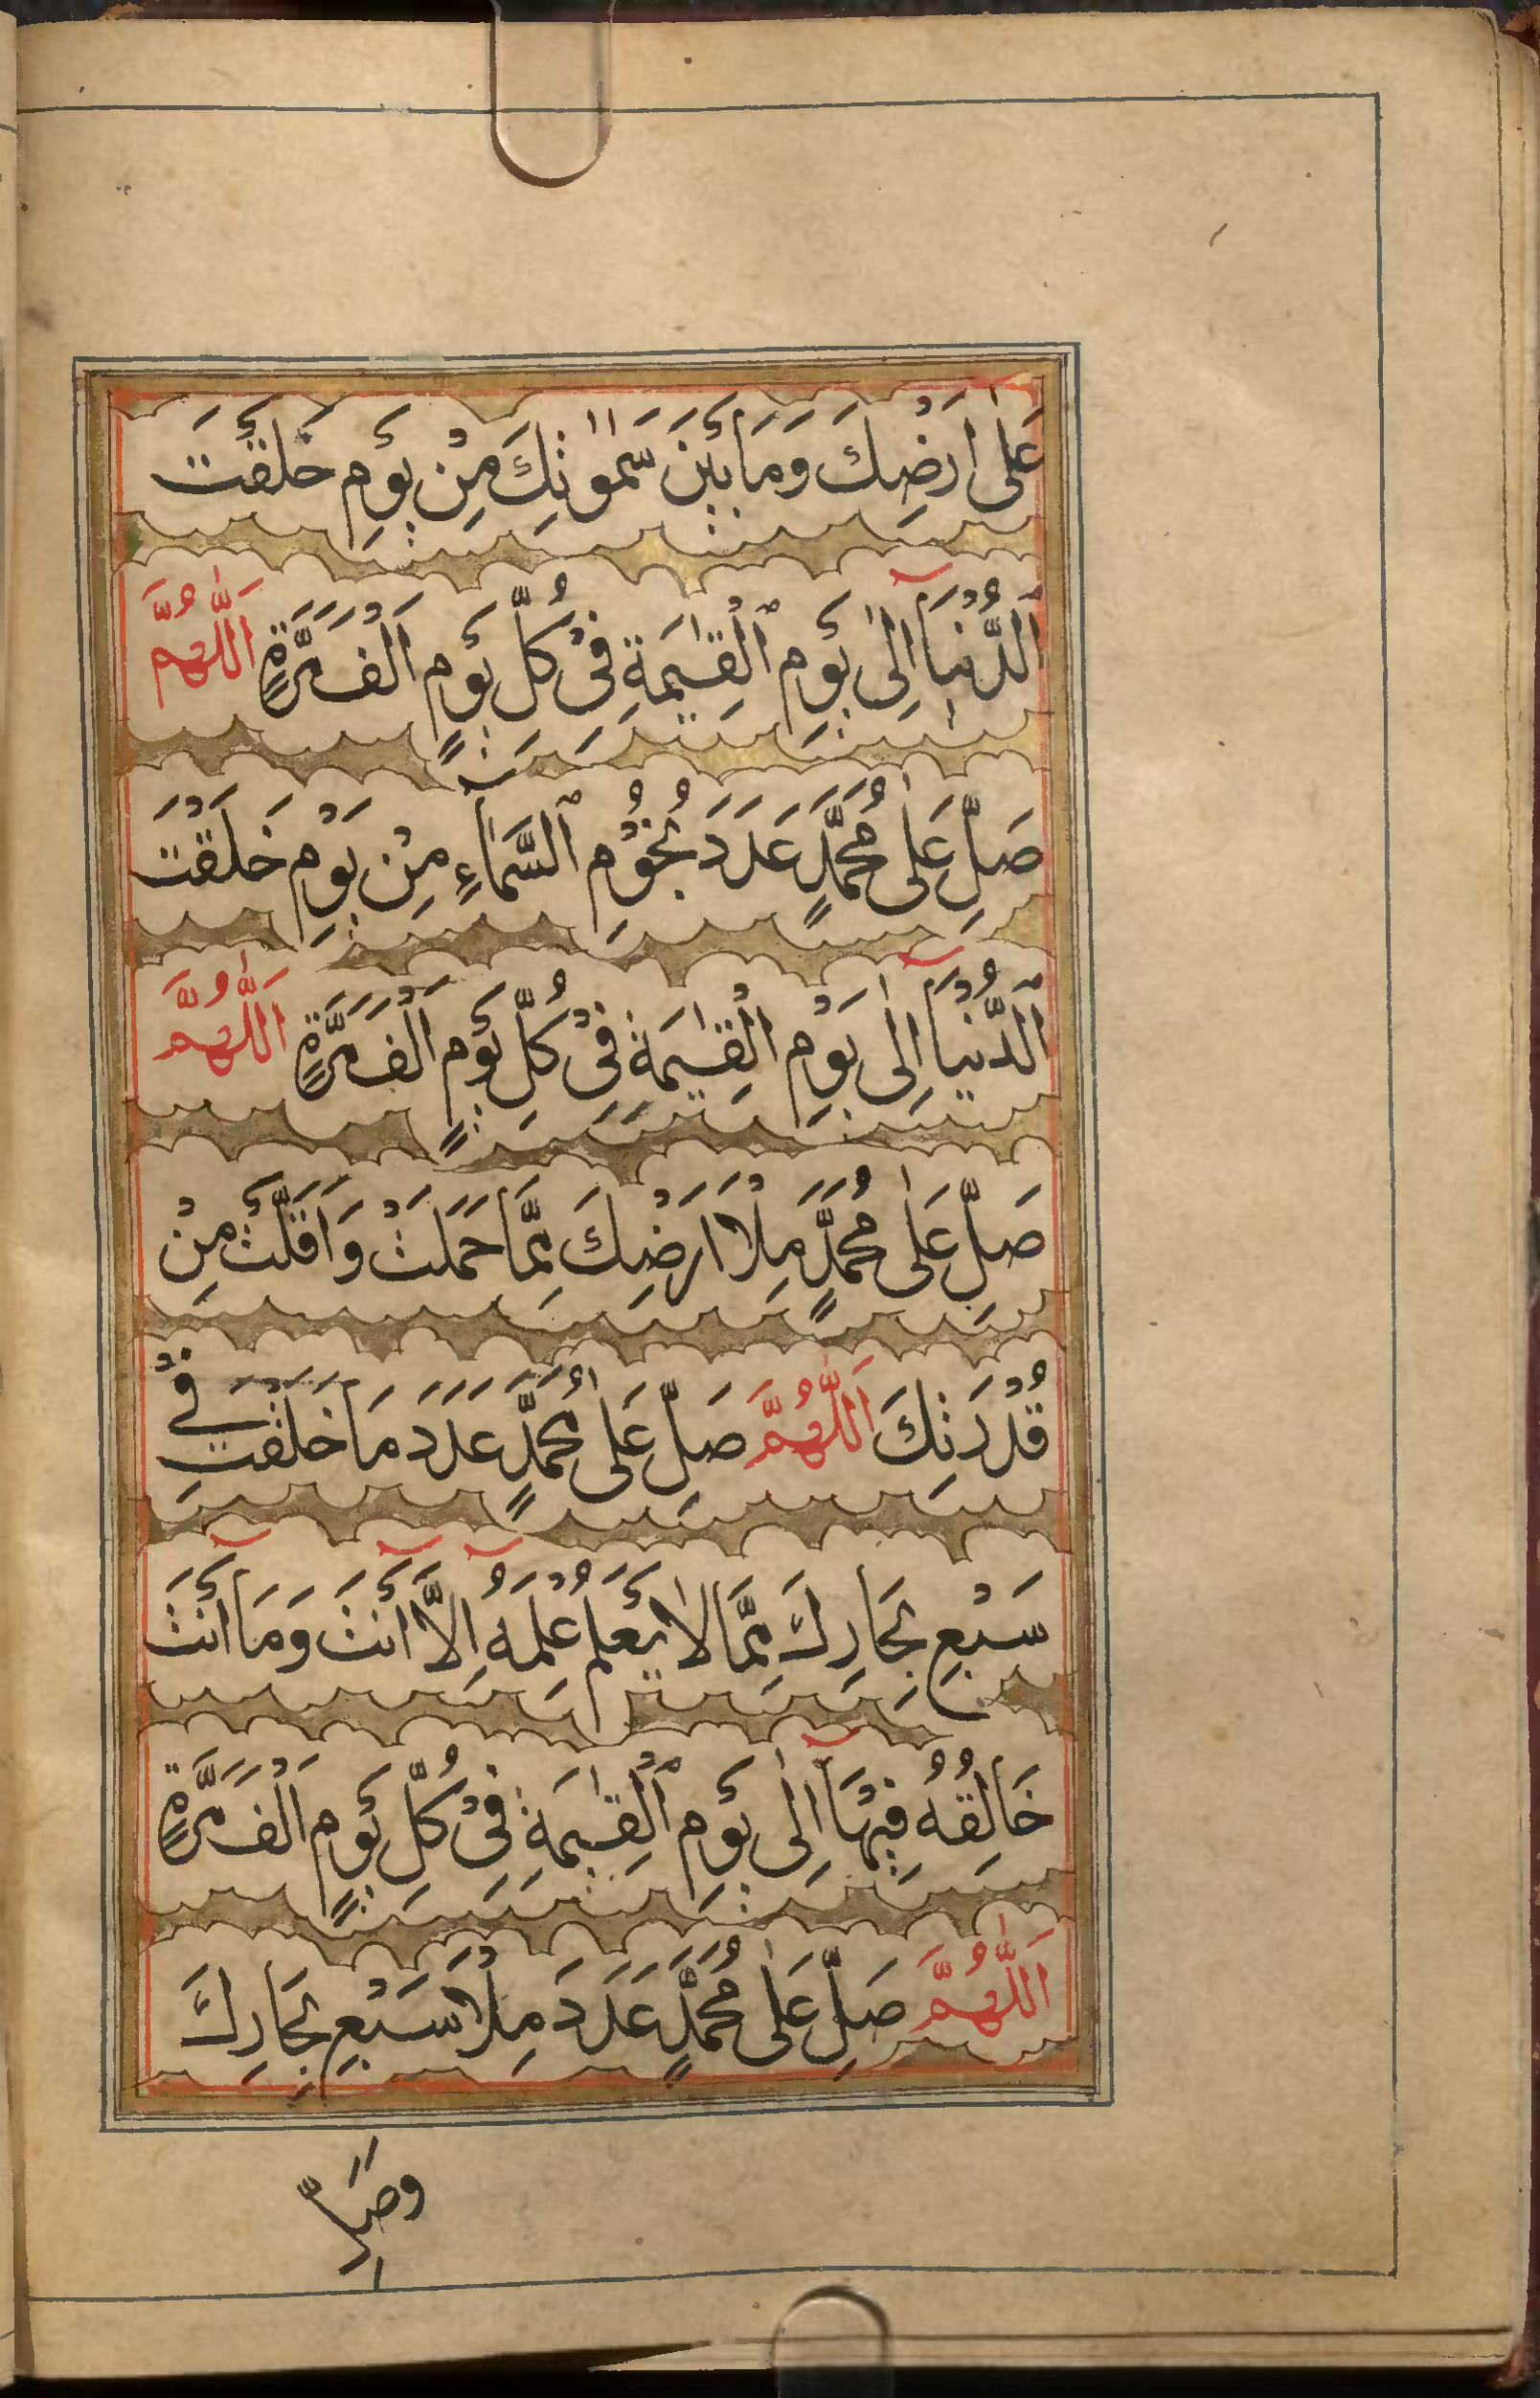 عَلٰى اَرْضِكَ وَمَا بَيْنَ سَمٰوٰتِكَ مِنْ يَوْمِ خَلَقْتَ
الدُّنْيَآ اِلٰى يَوْمِ الْقِيٰمَةِ فِىْ كُلِّ يَوْمٍ اَلْفَ مَرَّةٍ اَللّٰهُمَّ
صَلِّ عَلٰى مُحَمَّدٍ عَدَدَ نُجُوْمِ السَّمَآءِ مِنْ يَوْمِ خَلَقْتَ
الدُّنْيَآ اِلٰى يَوْمِ الْقِيٰمَةِ فِىْ كُلِّ يَوْمٍ اَلْفَ مَرَّةٍ اَللّٰهُمَّ
صَلِّ عَلٰى مُحَمَّدٍ مِلْاَ اَرْضِكَ مِمَّا حَمَلَتْ وَاَقَلَّتْ مِنْ
قُدْرَتِكَ اَللّٰهُمَّ صَلِّ عَلٰى مُحَمَّدٍ عَدَدَ مَا خَلَقْتَ فِىْ
سَبْعِ بِحَارِكَ مِمَّا لَا يَعْلَمُ عِلْمَهُ اِلَّآ اَنْتَ وَمَآ اَنْتَ
خَالِقُهُ فِيْهَآ اِلٰى يَوْمِ الْقِيٰمَةِ فِىْ كُلِّ يَوْمٍ اَلْفَ مَرَّةٍ
اَللّٰهُمَّ صَلِّ عَلٰى مُحَمَّدٍ عَدَدَ مِلْاَ سَبْعِ بِحَارِكَ
وَصَلِّ